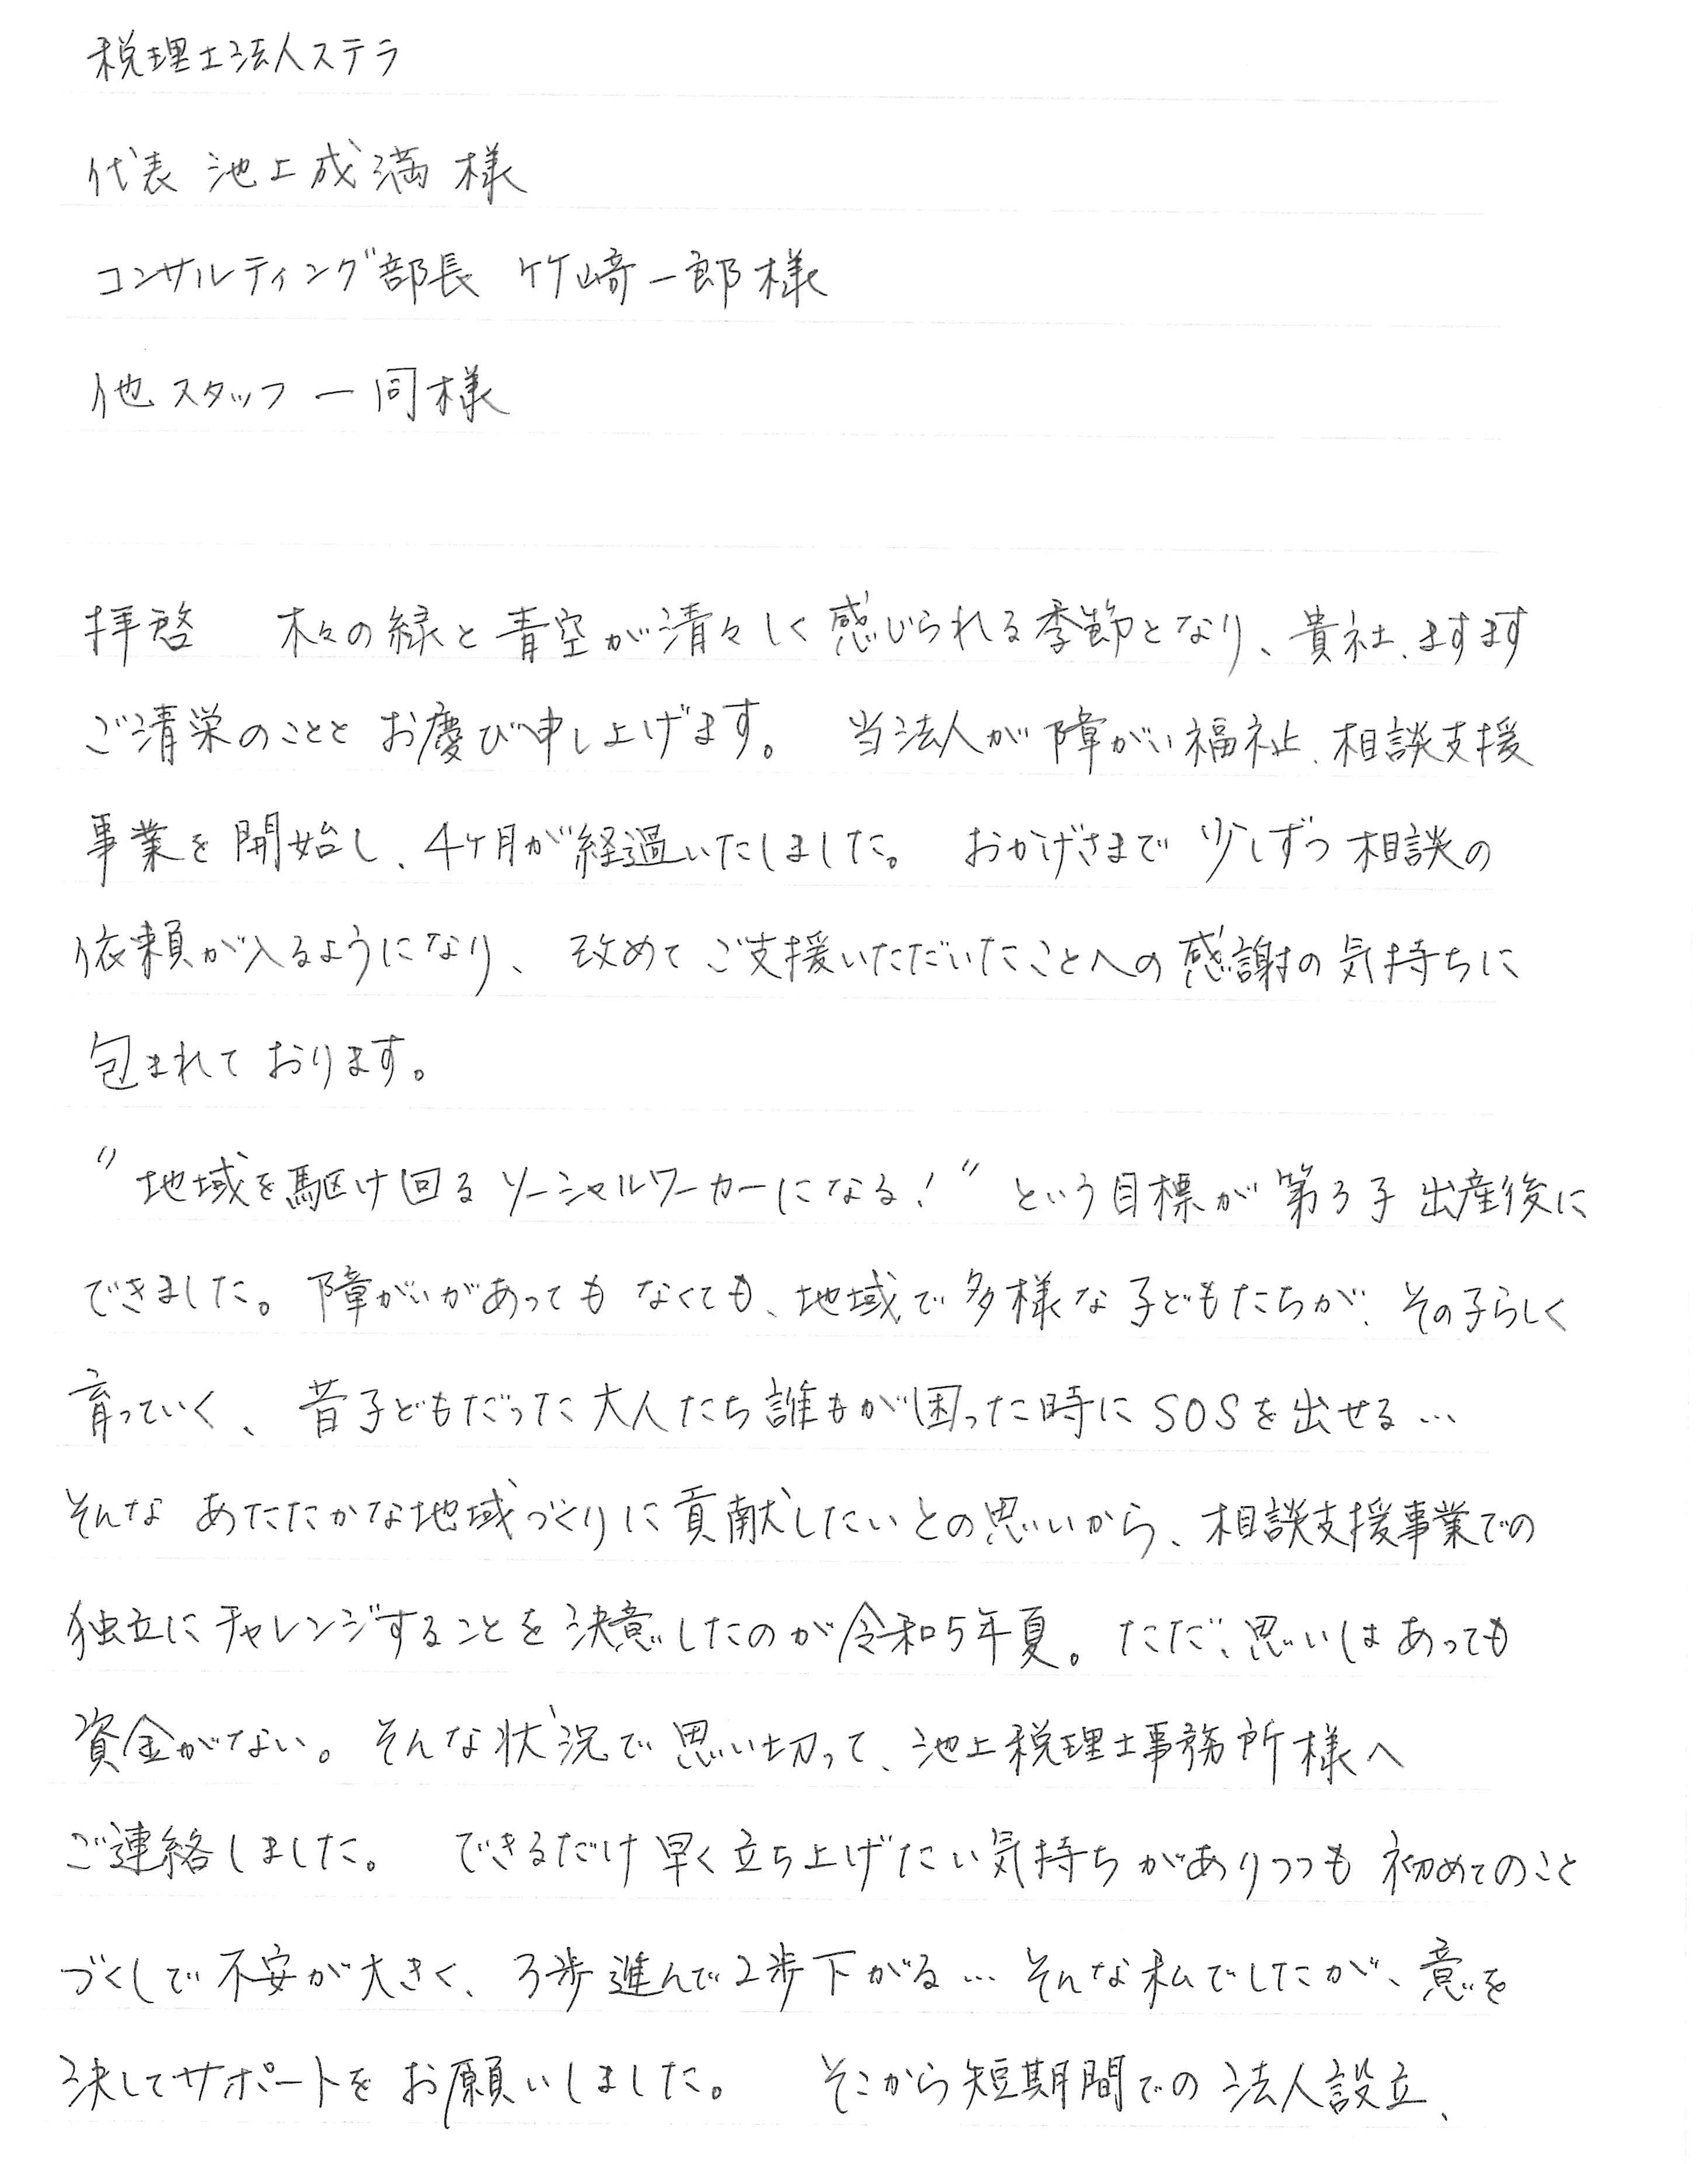 税理士法人ステラ
代表 池上成満 様
コンサルティング部長 竹﨑一郎様
他スタッフ一同様
拝啓　木々の緑と青空が清々しく感じられる季節となり、貴社、ますます
ご清栄のこととお慶び申し上げます。　当法人が障がい福祉、相談支援
事業を開始し、4ヶ月が経過いたしました。　おかげさまで少しずつ相談の
依頼が入るようになり、改めてご支援いただいたことへの感謝の気持ちに
包まれております。
"地域を駆け回るソーシャルワーカーになる！"という目標が第3子出産後に
できました。障がいがあってもなくても、地域で多様な子どもたちが、その子らしく
育っていく、昔子どもだった大人たち誰もが困った時にSOSを出せる…
そんなあたたかな地域づくりに貢献したいとの思いから、相談支援事業での
独立にチャレンジすることを決意したのが令和5年夏。ただ、思いはあっても
資金がない。そんな状況で思い切って、池上税理士事務所様へ
ご連絡しました。　できるだけ早く立ち上げたい気持ちがありつつも初めてのこと
づくしで不安が大きく、3歩進んで2歩下がる…そんな私でしたが、意を
決してサポートをお願いしました。　そこから短期間での法人設立、